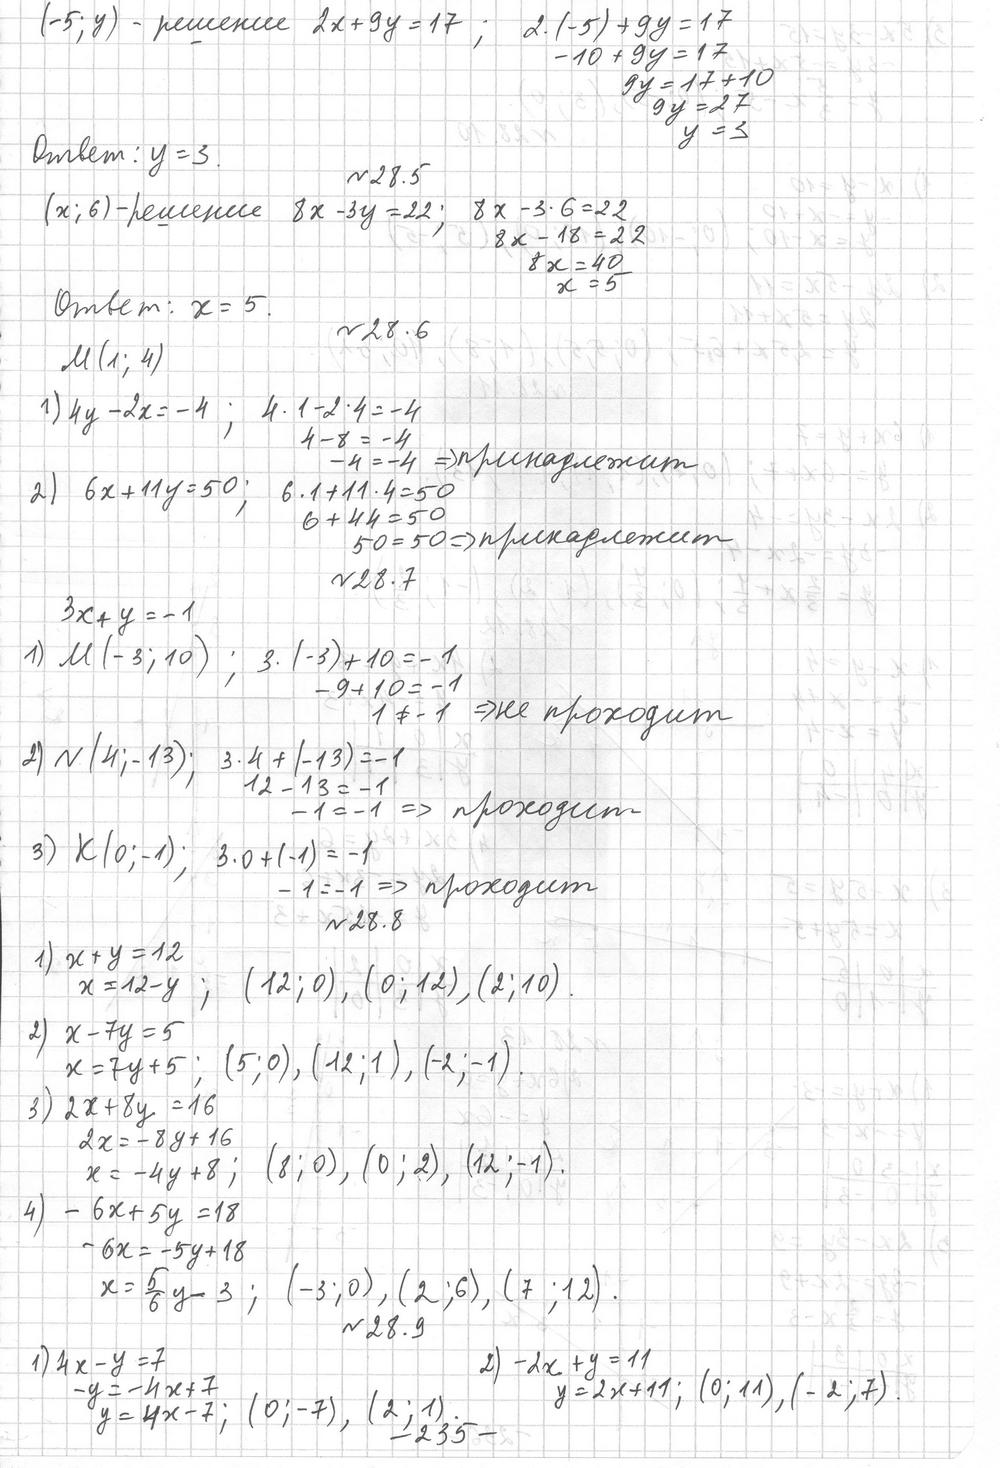 (-5; y) - решение 2x+9y=17; 2·(-5)+9y=17
-10+9y=17
9y=17+10
9y=27
y=3
Ответ: y=3.
№28.5
(x; 6) - решение 8x-3y=22; 8x-3·6=22
8x-18=22
8x=40
x=5
Ответ: x=5.
№28.6
M(1; 4)
1) 4y-2x=-4; 4·1-2·4=-4
4-8=-4
-4=-4 => принадлежит
2) 6x+11y=50; 6·1+11·4=50
6+44=50
50=50 => принадлежит
№28.7
3x+y=-1
1) M(-3; 10); 3·(-3)+10=-1
-9+10=-1
1≠-1 => не проходит
2) N(4; -13); 3·4+(-13)=-1
12-13=-1
-1=-1 => проходит
3) K(0; -1); 3·0+(-1)=-1
-1=-1 => проходит
№28.8
1) x+y=12
x=12-y; (12; 0), (0; 12), (2; 10).
2) x-7y=5
x=7y+5; (5; 0), (12; 1), (-2; -1).
3) 2x+8y=16
2x=-8y+16
x=-4y+8; (8; 0), (0; 2), (12; -1).
4) -6x+5y=18
-6x=-5y+18
x=5/6y-3; (-3; 0), (2; 6), (7; 12).
№28.9
1) 4x-y=7
-y=-4x+7
y=4x-7; (0; -7), (2; 1).
2) -2x+y=11
y=2x+11; (0; 11), (-2; 7).
-235-